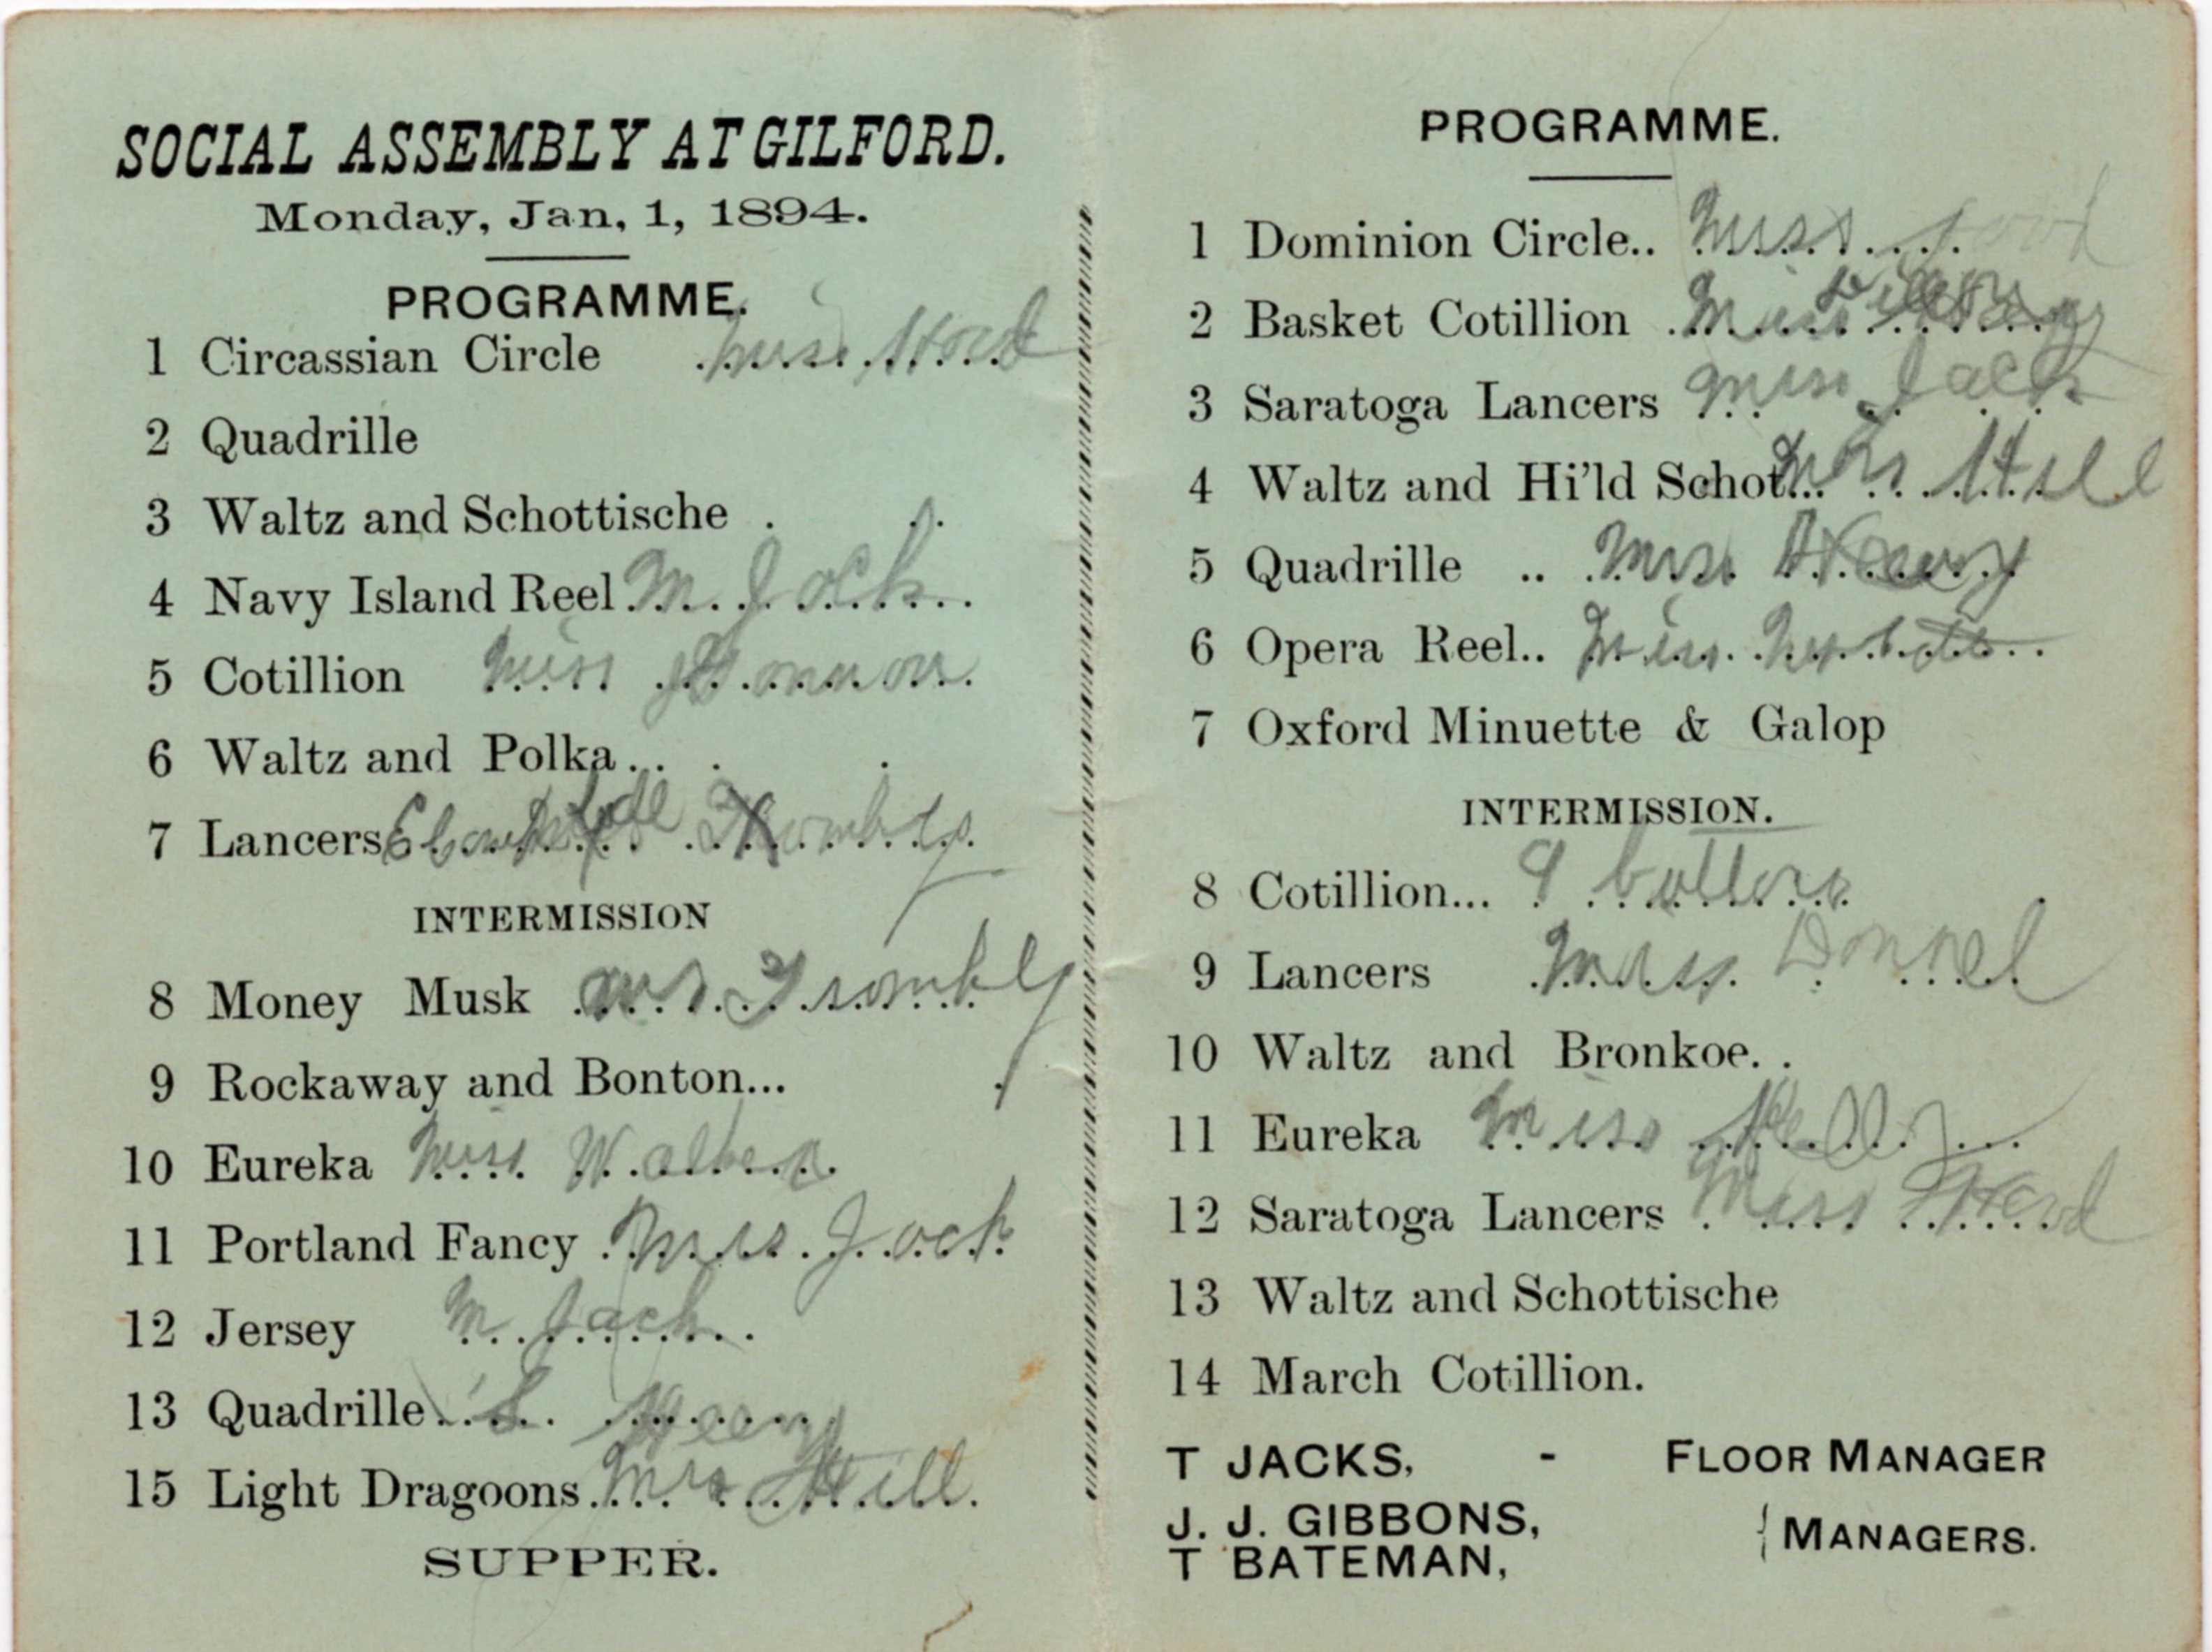 SOCIAL ASSEMBLY AT GILFORD.
Monday, Jan, 1, 1894.
PROGRAMME.
1 Circassian Circle Miss
2 Quadrille
3 Waltz and Schottische
4 Navy Island Reel M Jack
5 Cotillion Miss
6 Waltz and Polka
7 Lancers
INTERMISSION
8 Money Musk Mrs Trombly
9 Rockaway and Bonton...
10 Eureka Miss
11 Portland Fancy Mrs Jack
12 Jersey M Jack
13 Quadrille
15 Light Dragoons Mrs Hill
SUPPER.
PROGRAMME.
1 Dominion Circle.. Miss
2 Basket Cotillion Miss
3 Saratoga Lancers Miss Jack
4 Waltz and Hi'ld Schot... Mrs Hill
5 Quadrille .. Miss
6 Opera Reel.. Miss
7 Oxford Minuette & Galop
INTERMISSION.
8 Cotillion...
9 Lancers Miss Donnel
10 Waltz and Bronkoe. .
11 Eureka Miss Kelly
12 Saratoga Lancers Miss
13 Waltz and Schottische
14 March Cotillion.
T JACKS, - FLOOR MANAGER
J. J. GIBBONS,
T BATEMAN, } MANAGERS.